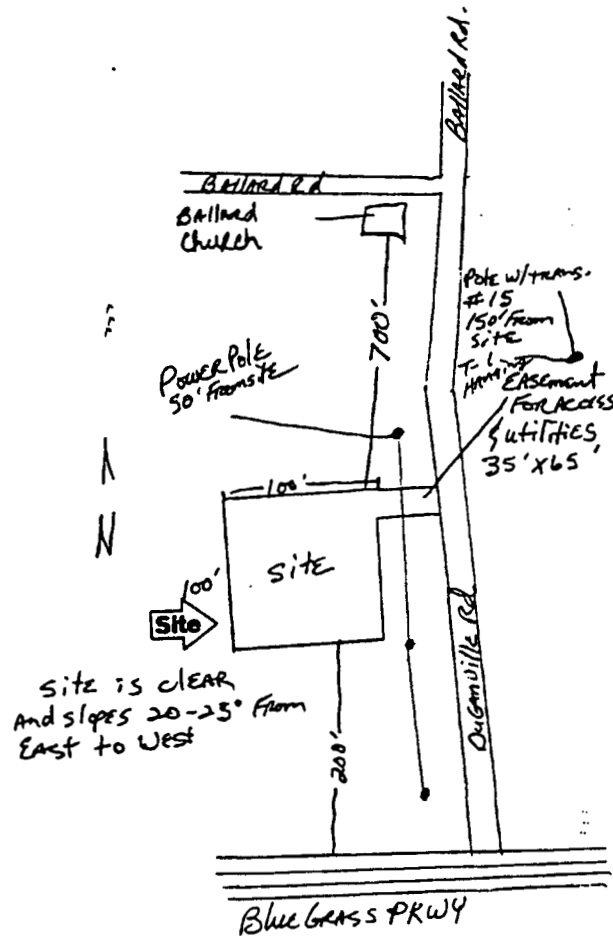 Ballard Rd.
Ballard Rd
Ballard
Church
Pole w/trans.
#15
150' From
site
700'
Power Pole
50' From site
Easement
For Access
& utilities
35' x 65'
100'
N
site
100'
Site
site is clear
And slopes 20-25° From
East to West
Duganville Rd.
200'
Blue Grass PKWY